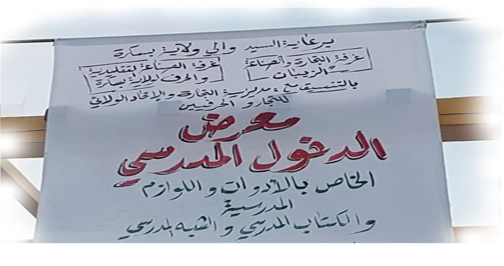 برعاية السيد والي ولاية بسكرة
غرفة التجارة والصناعة غرفة الصناعة التقليدية
الزيبان والحرف لولاية بسكرة
بالتنسيق مع مديرية التجارة والإتحاد الولائي
للتجار و الحرفيين
معرض
الدخول المدرسي
الخاص بالأدوات و اللوازم
المدرسية
والكتاب المدرسي و الشبه المدرسي